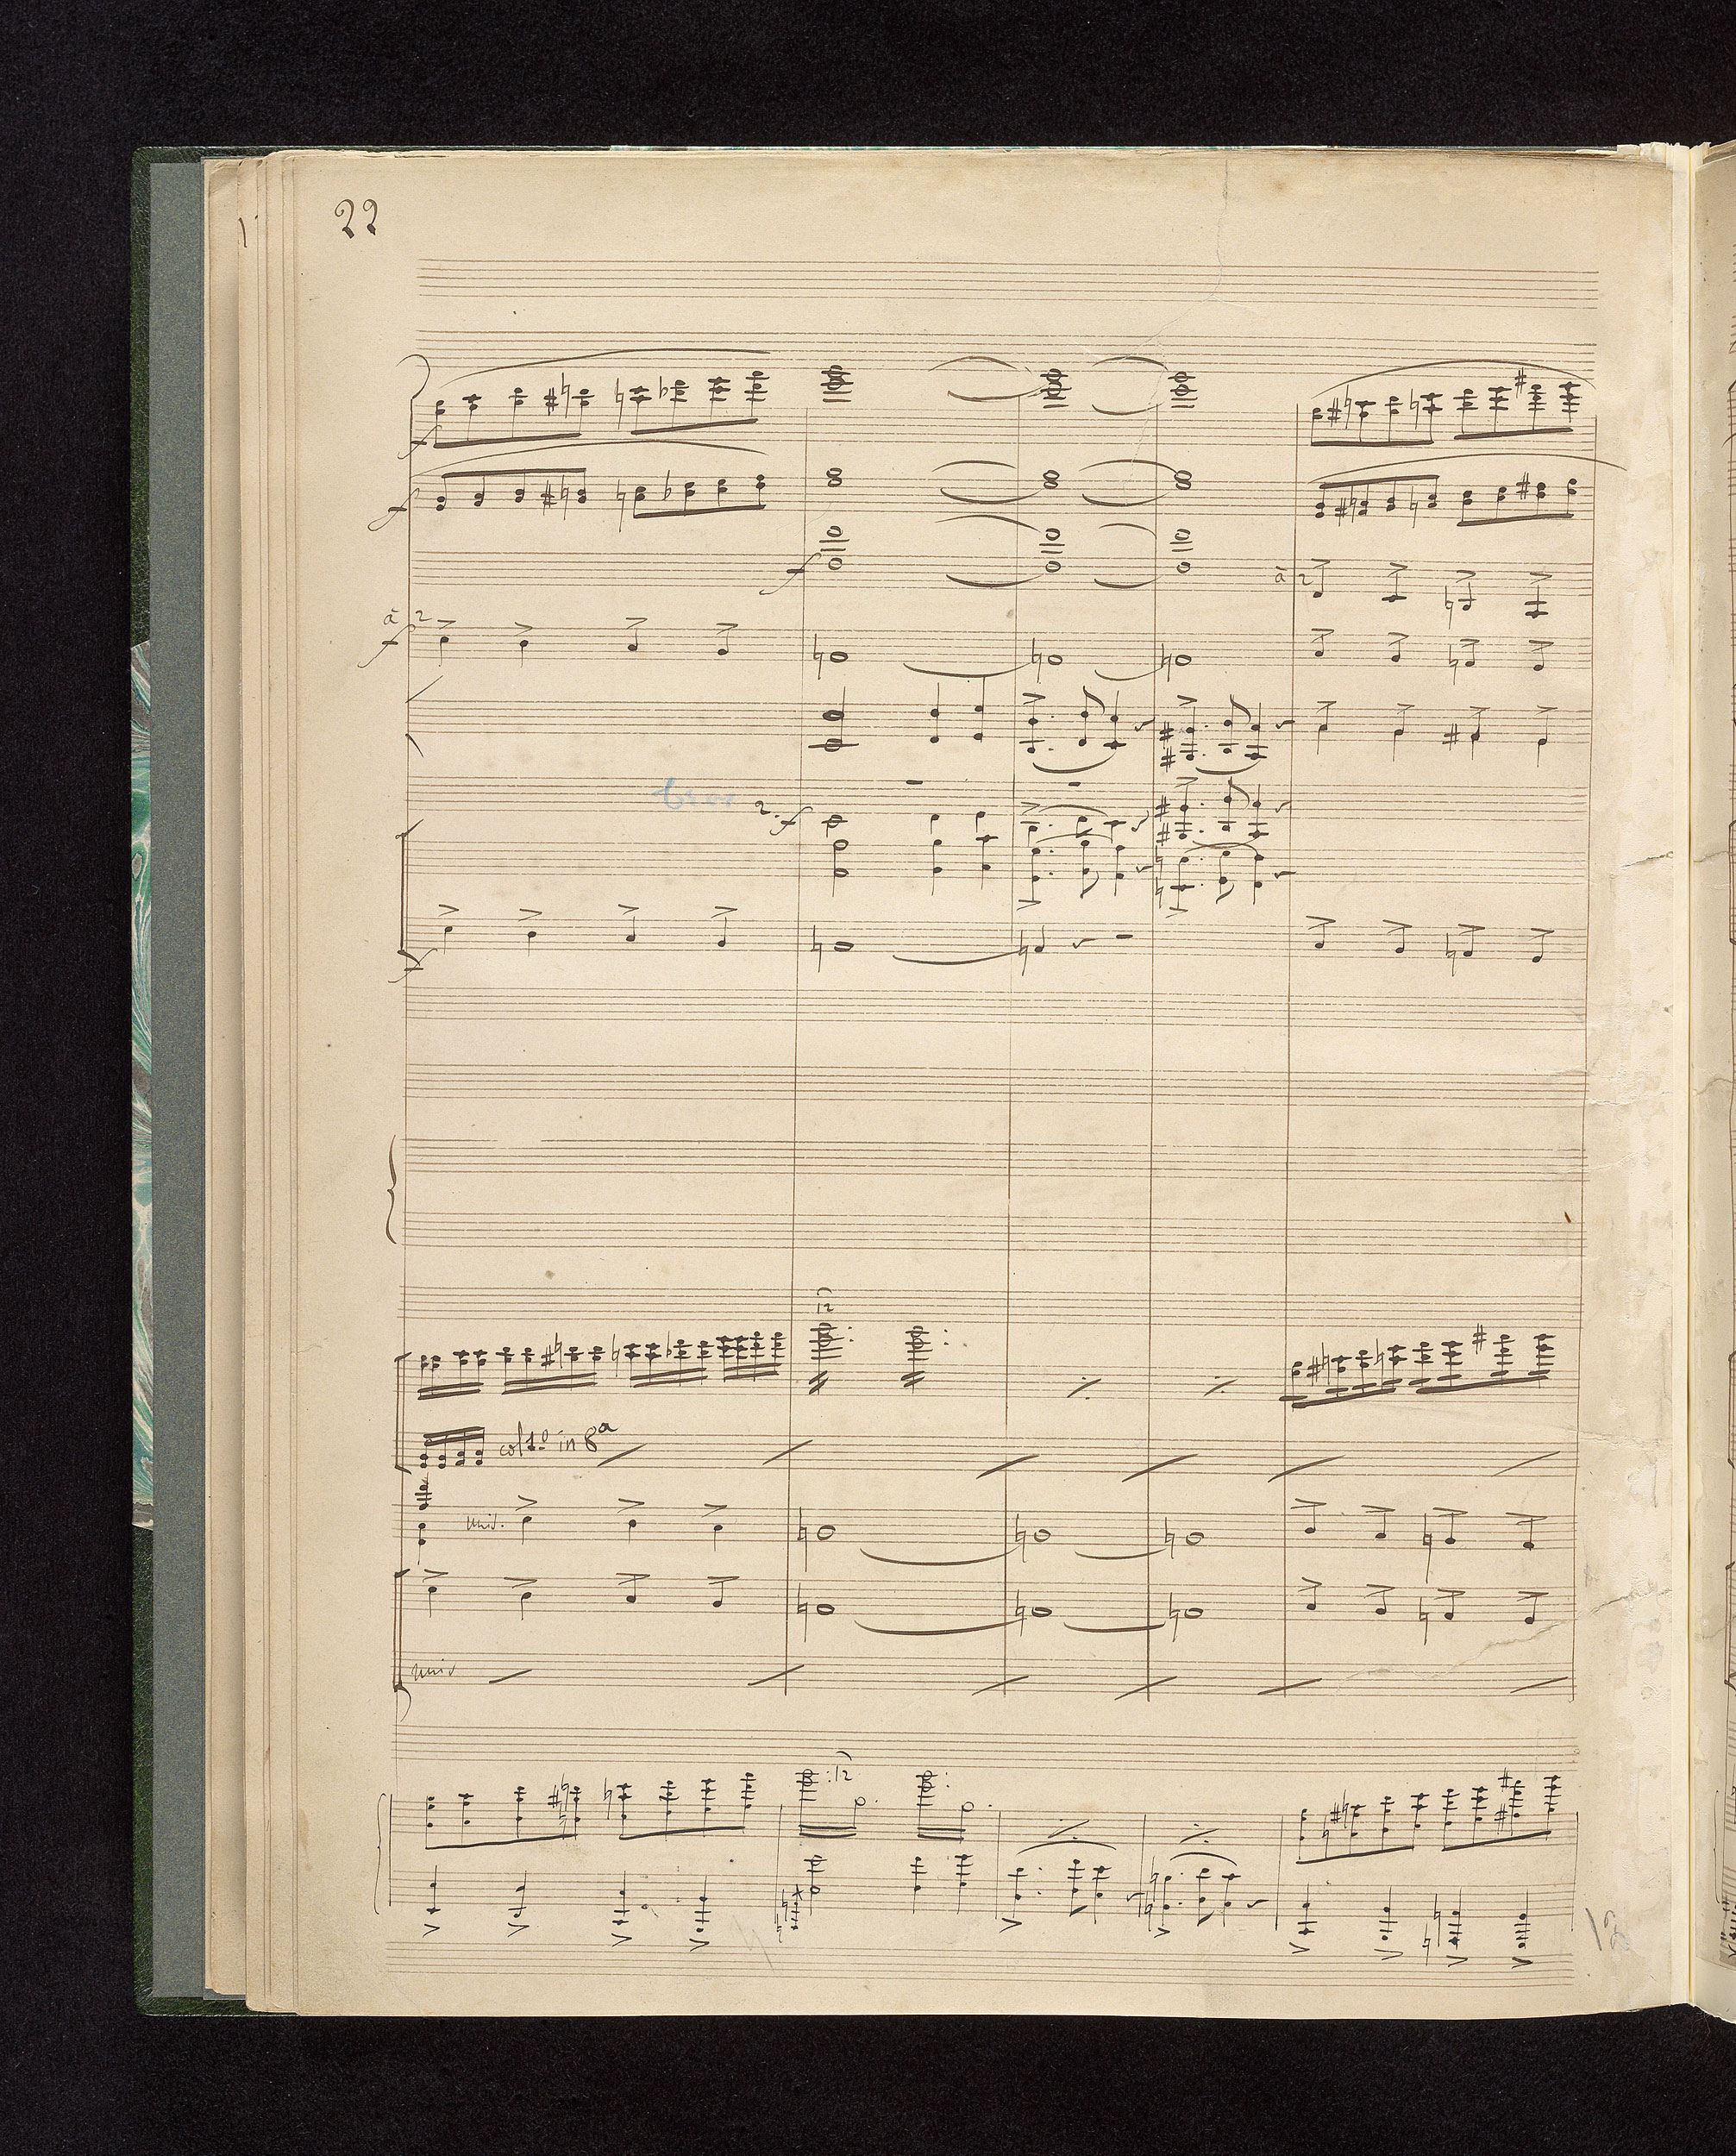 22
f
f
f
à 2
à 2
f
2. f
f
12
col 1º in 8ª
unis.
unis
12
12